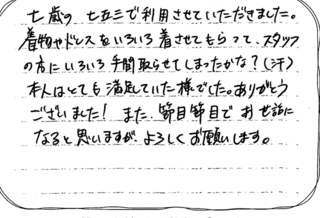 七歳の 七五三で利用させていただきました。
着物やドレスをいろいろ着させてもらって、スタッフ
の方にいろいろ手間取らせてしまったかな?(汗)
本人はとても満足していた様でした。ありがとう
ございました! また、節目節目でお世話に
なると思いますが、よろしくお願いします。